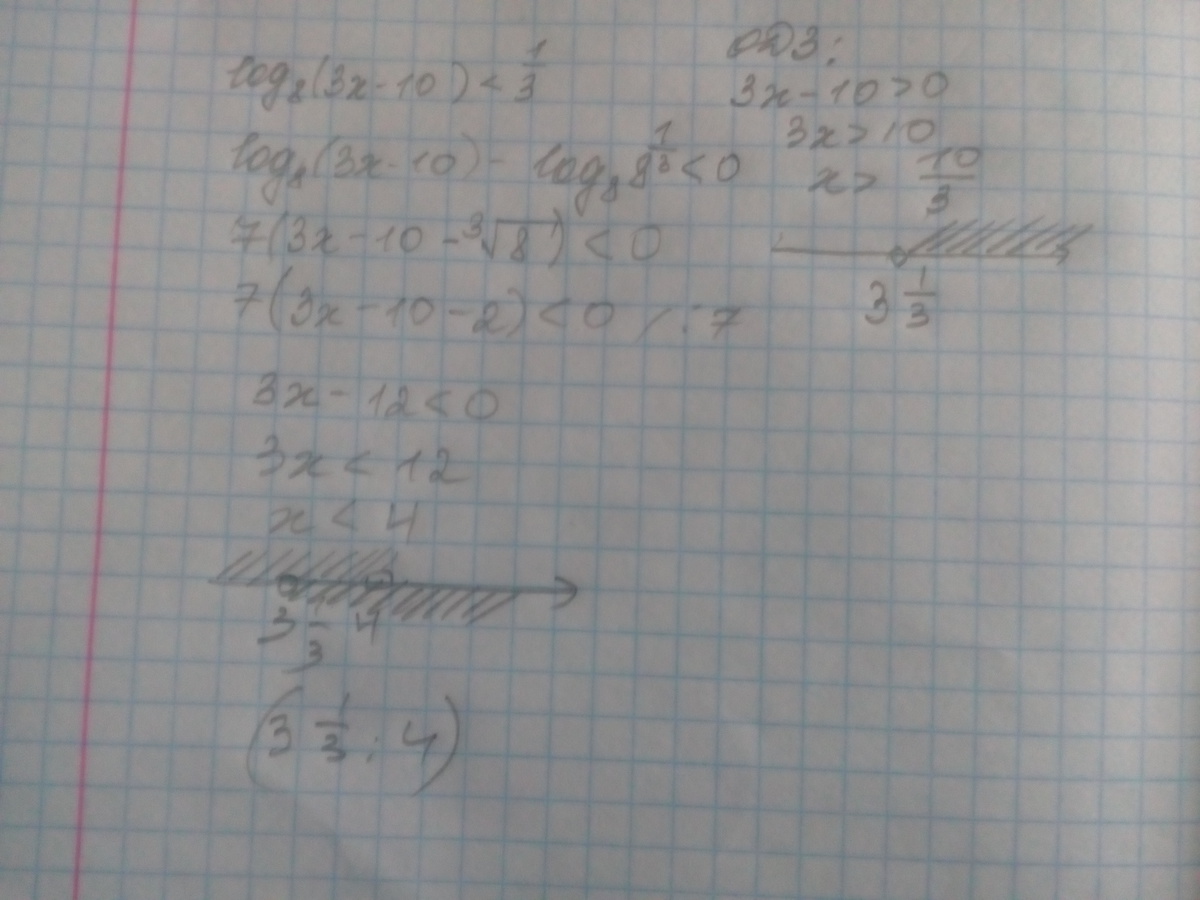 log₈(3x-10) < 1/3
log₈(3x-10) - log₈8^(1/3) < 0
7(3x-10-∛8) < 0
7(3x-10-2) < 0 / : 7
3x-12<0
3x < 12
x < 4
3 1/3 4
(3 1/3 ; 4)
ОДЗ:
3x-10>0
3x>10
x> 10/3
3 1/3